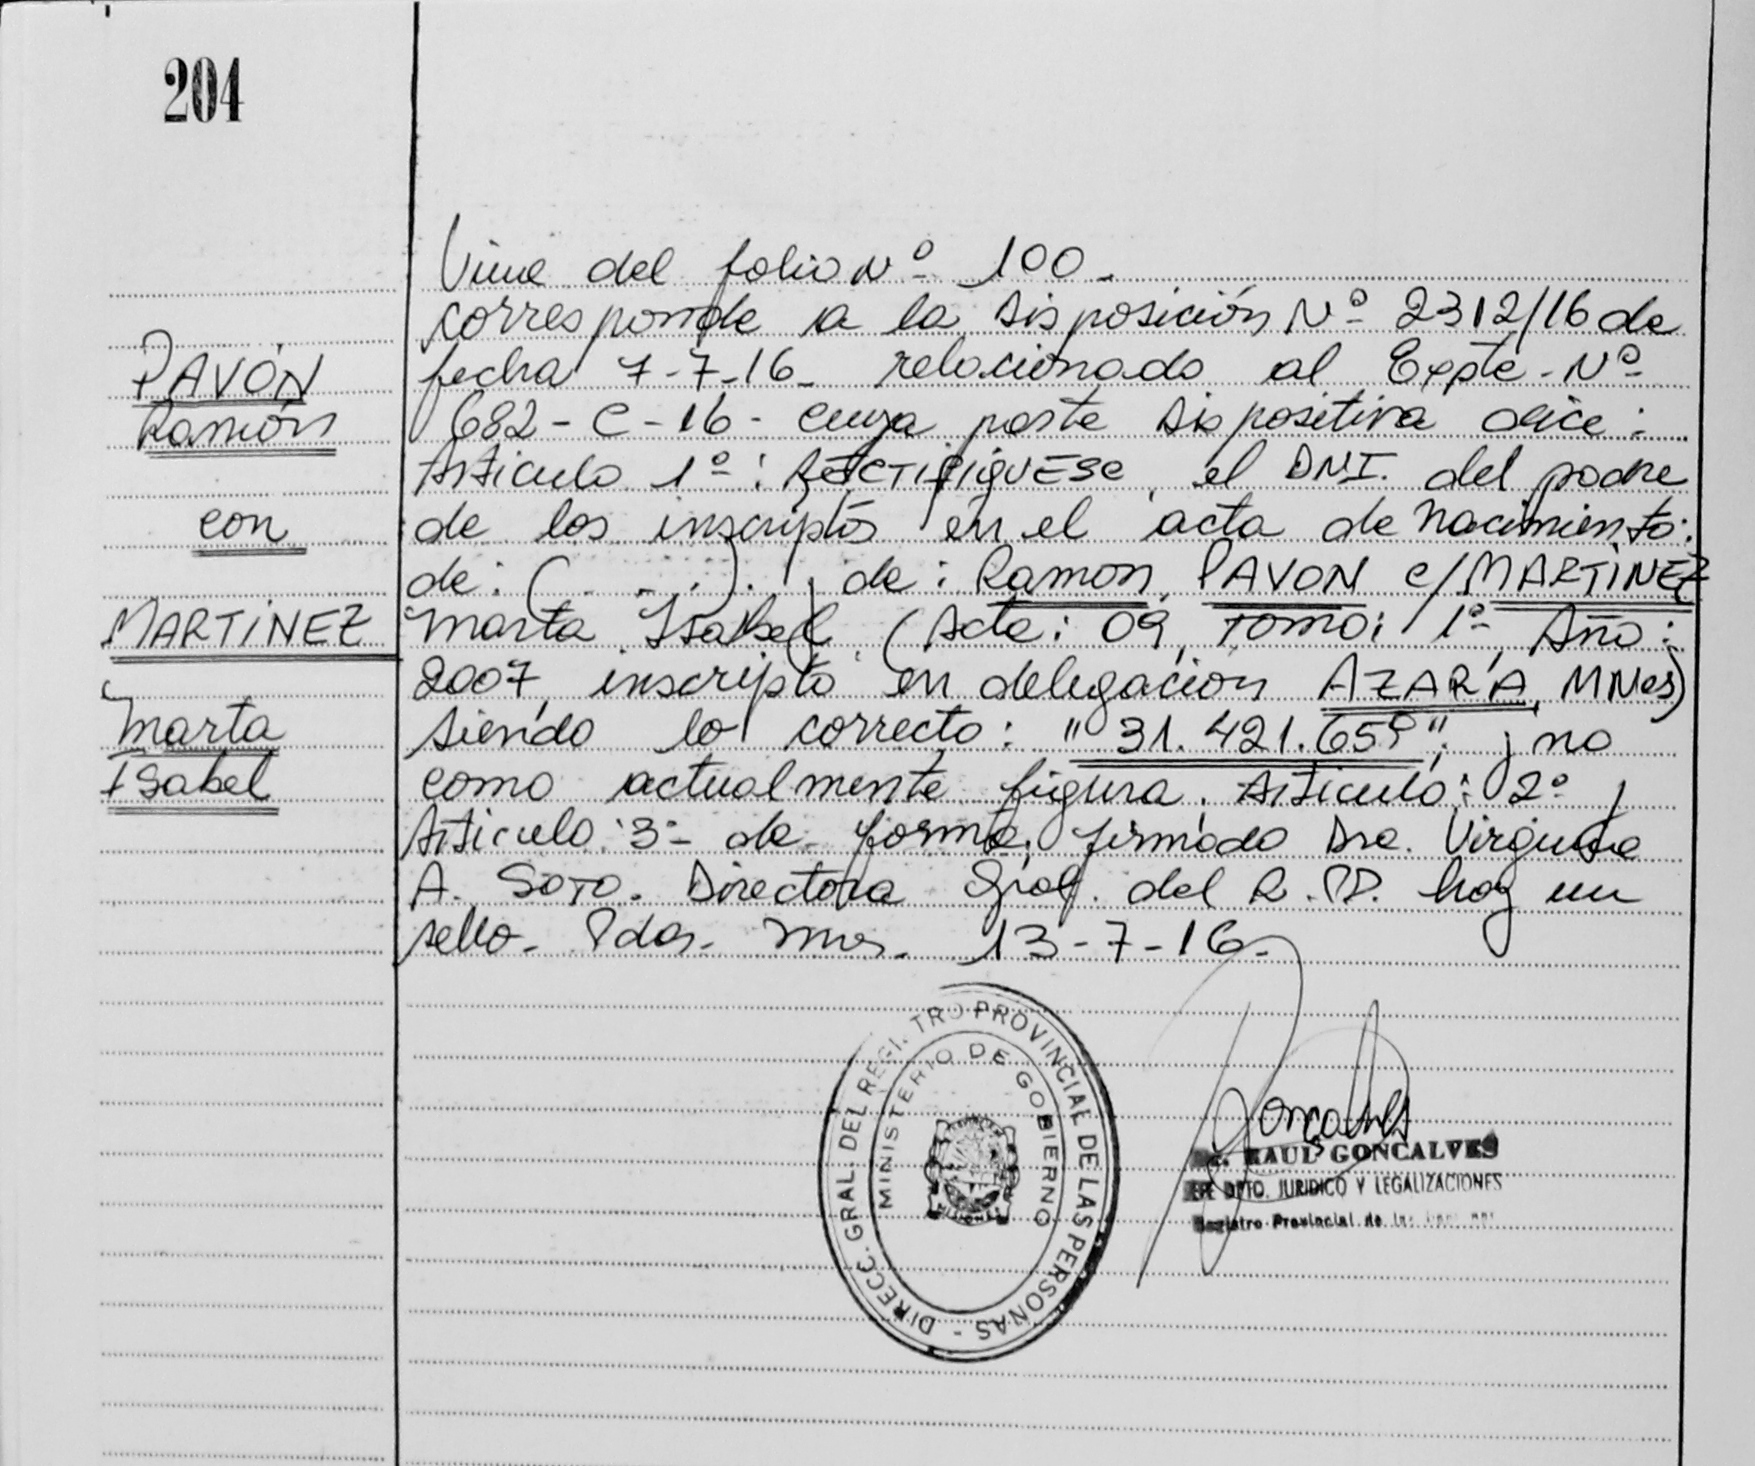 204
Viene del folio Nº 100-
corresponde a la disposición Nº 2312/16 de
fecha 7-7-16- relacionado al Expte- Nº
682-C-16- cuya parte dispositiva dice:
Articulo 1º: RECTIFIQUESE, el DNI. del padre
de los inscriptos en el acta de nacimiento:
de: (. . . .). y de: Ramon PAVON c/MARTINEZ
Marta Isabel. (Acta: 09, Tomo: 1º Año:
2007, inscripto en delegación AZARA, MNes)
siendo lo correcto: "31.421.659" y no
como actualmente figura. Articulo: 2º y
Articulo 3º de forma, firmado Dra. Virginia
A. Soto. Directora Gral. del R.PP. hay un
sello- Pdas- Mnes- 13-7-16-
PAVÓN
Ramón
con
MARTINEZ
Marta
Isabel
DIRECC. GRAL. DEL REGISTRO PROVINCIAL DE LAS PERSONAS -
MINISTERIO DE GOBIERNO
MISIONES
Goncalves
RAUL GONCALVES
DPTO. JURIDICO Y LEGALIZACIONES
Registro Provincial de las